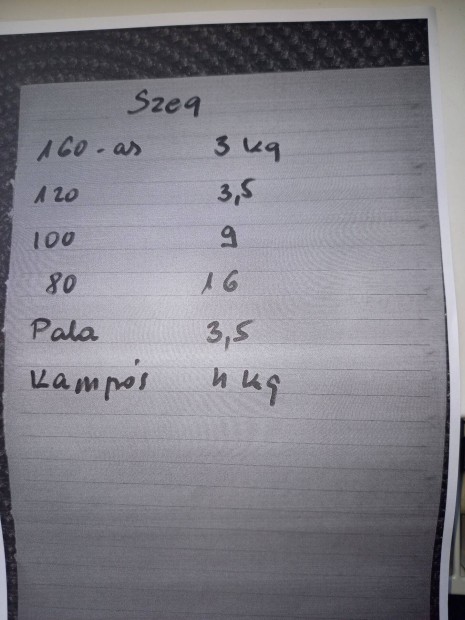 Szeg
160-as 3 kg
120 3,5
100 9
80 16
Pala 3,5
Kampós 4 kg